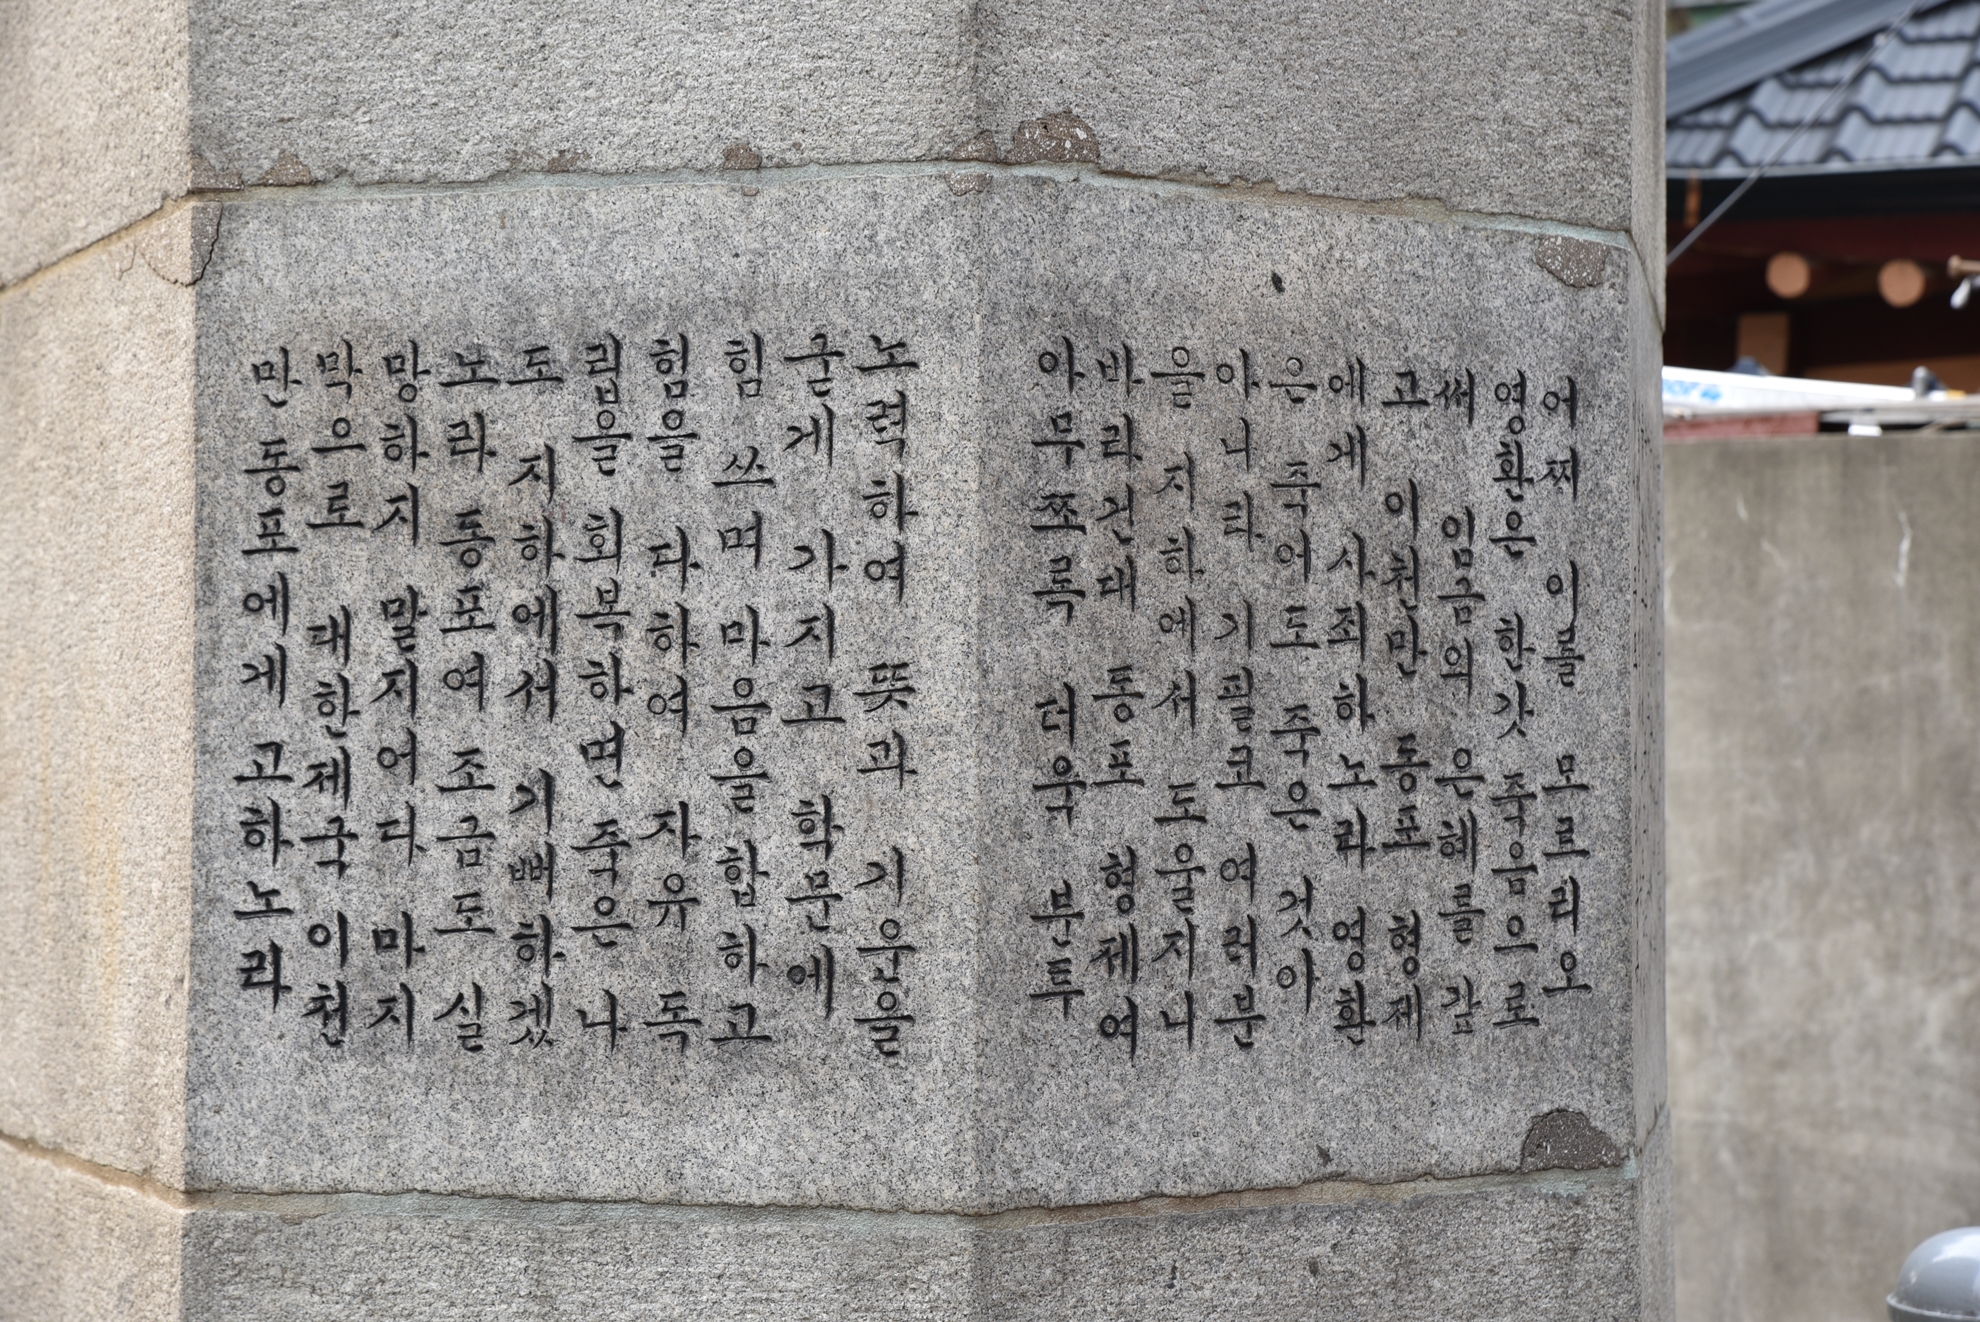 어찌 이를 모르리오
영환은 한갓 죽음으로
써 임금의 은혜를 갚
고 이천만 동포 형제
에게 사죄하노라 영환
은 죽어도 죽은 것아
아니라 기필코 여러분
을 지하에서 도울지니
바라건대 동포 형제여
아무쪼록 더욱 분투
노력하여 뜻과 기운을
굳게 가지고 학문에
힘 쓰며 마음을 합하고
힘을 다하여 자유 독
립을 회복하면 죽은 나
도 지하에서 기뻐하겠
노라 동포여 조금도 실
망하지 말지어다 마지
막으로 대한제국 이천
만 동포에게 고하노라